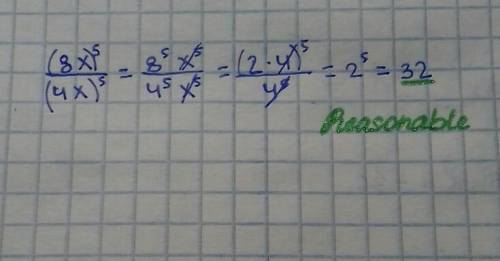 (8x)⁵/(4x)⁵ = 8⁵ x⁵/4⁵ x⁵ = (2·4)⁵/4⁵ = 2⁵ = 32
Reasonable